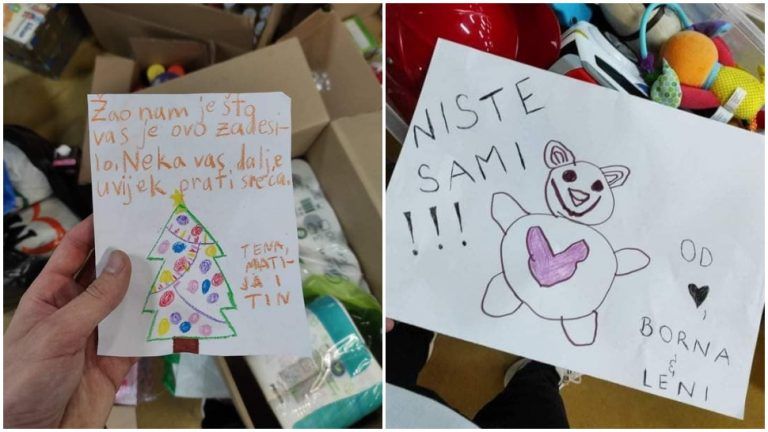 Žao nam je što
vas je ovo zadesi-
lo. Neka vas dalje
uvijek prati sreća.
TENA,
MATI-
JA I
TIN
NISTE
SAMI
!!!
OD
♥,
BORNA
&
LENI